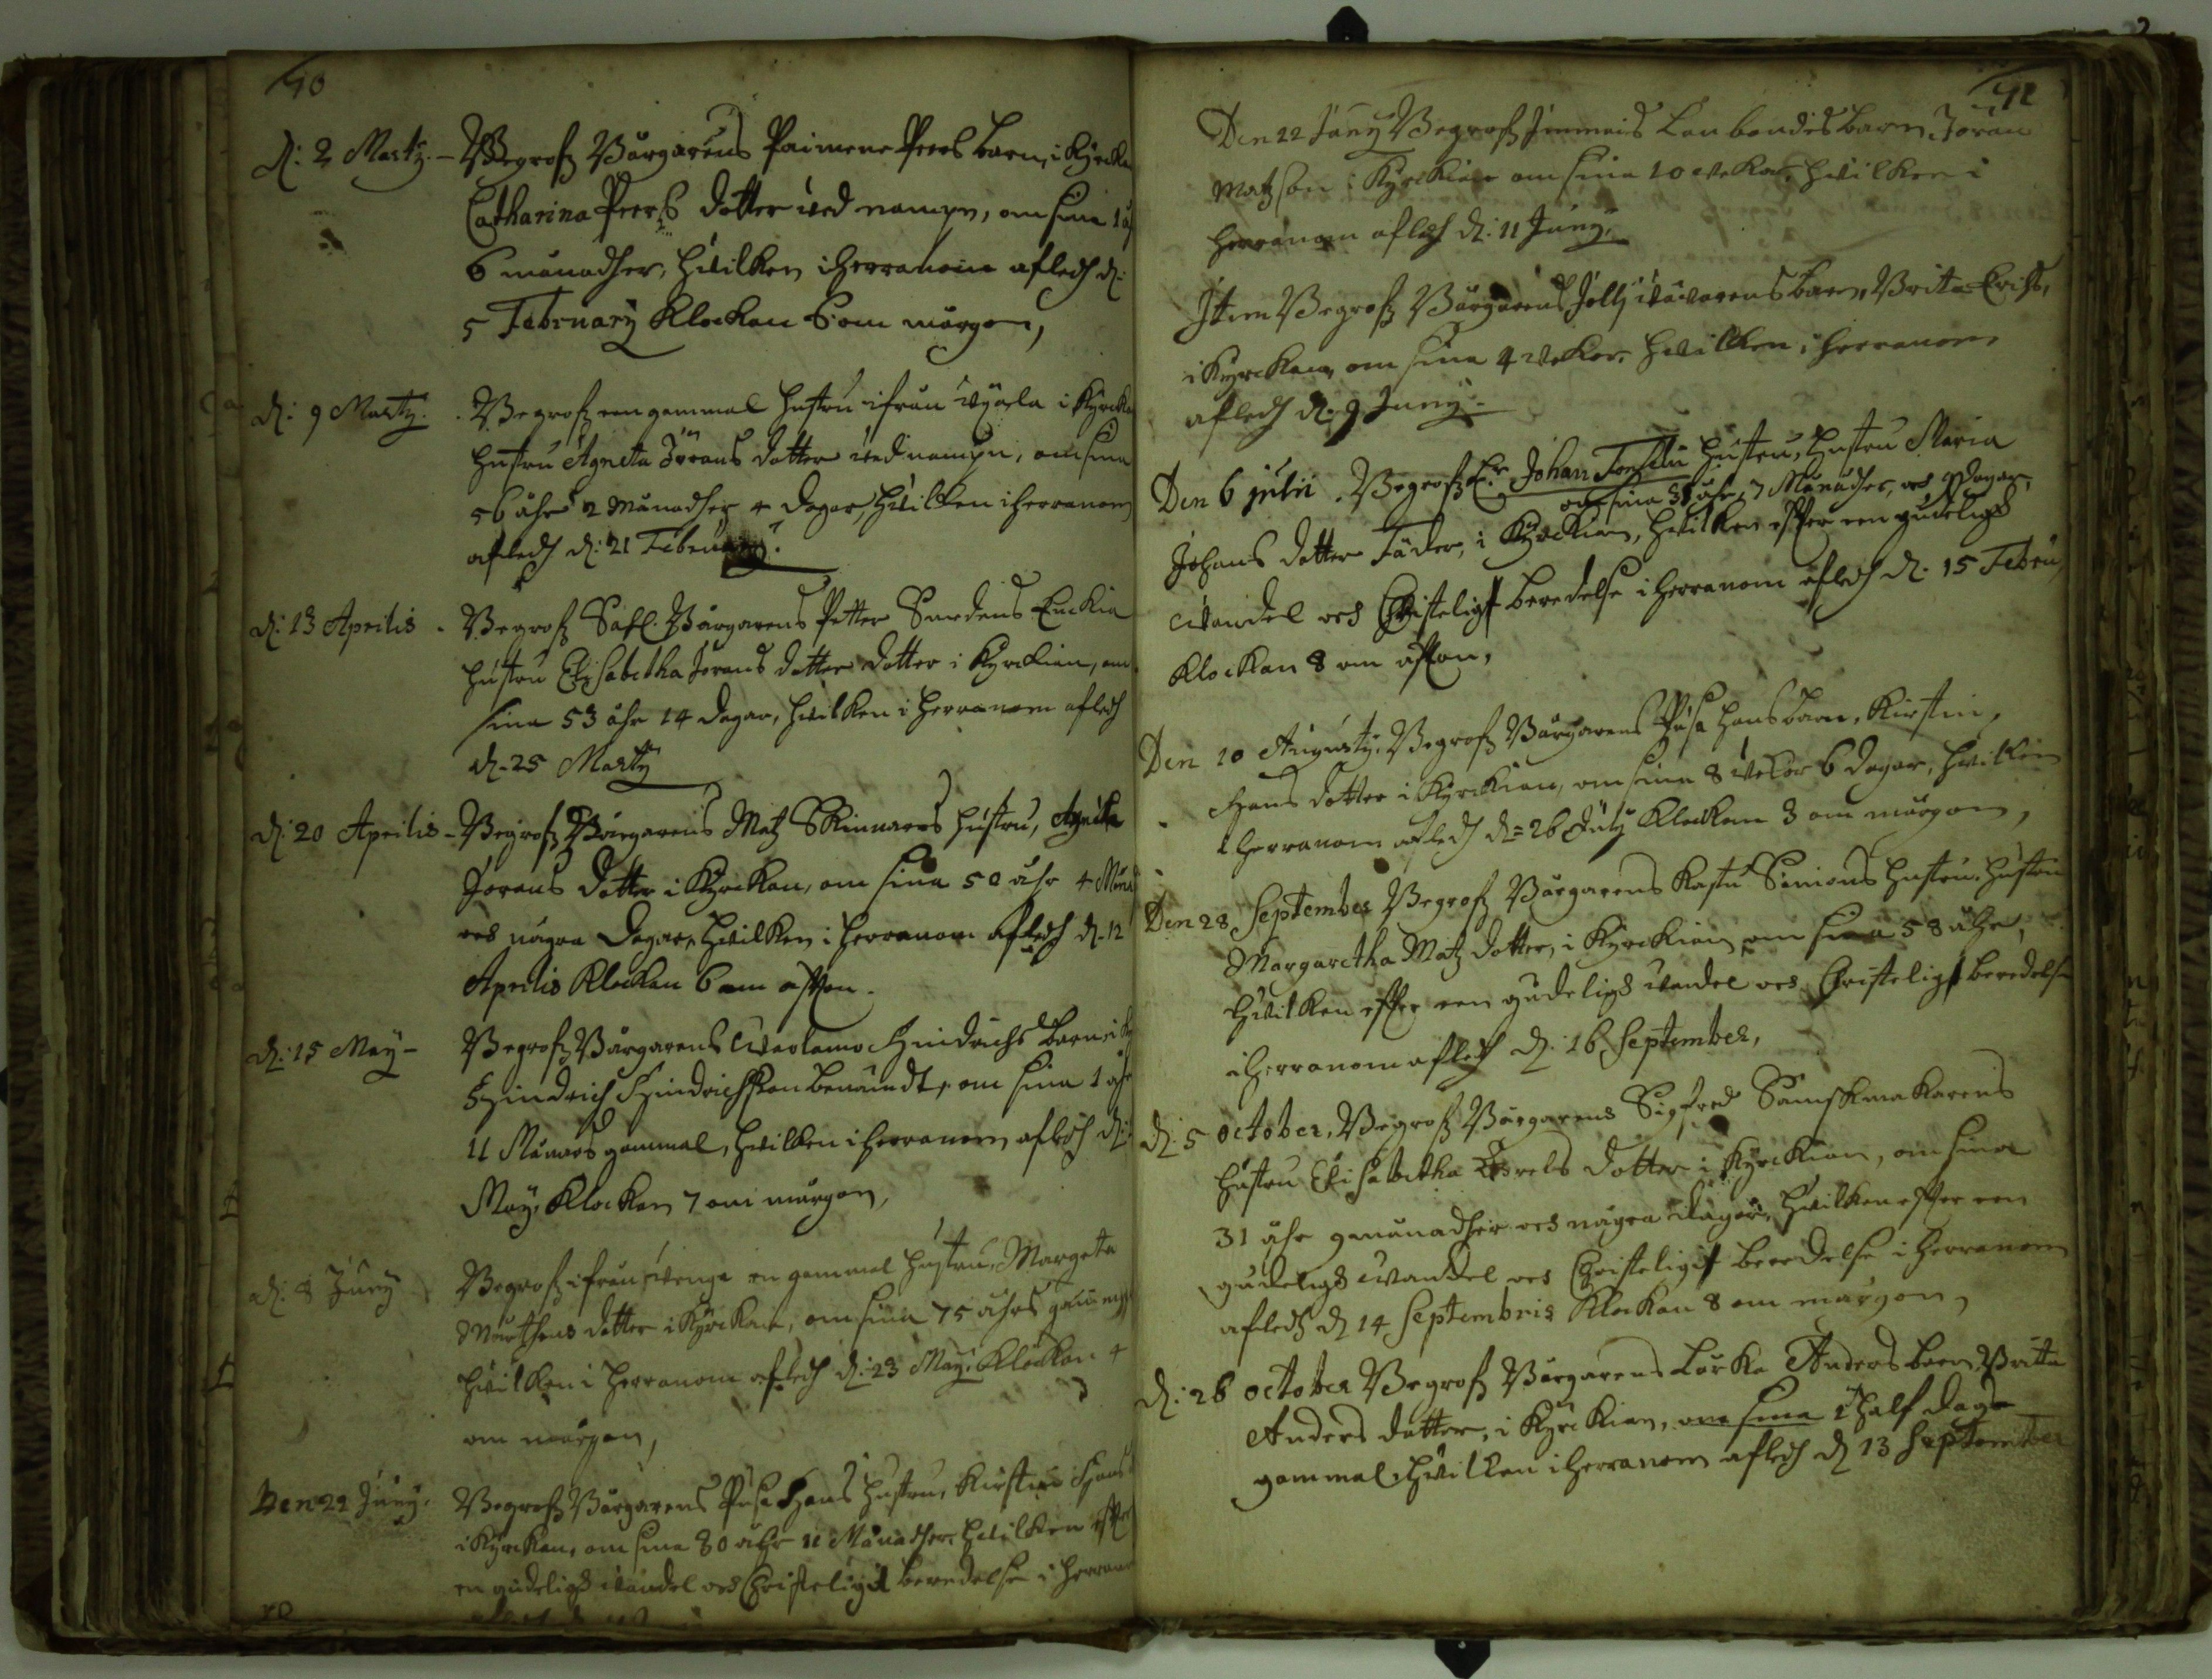 40
d: 2 Martij. - Begrofz Bårgarens Paimene Peers barn, i Kyrckan
Catharina Peers dotter ved nampn, om sina 1 åhr
6 månadher, hvilken i herranom afledh d:
5 February Klockan 6 om morgon,
d: 9 Martij. Begrofz een gammal hustru ifrån i Kyrckan
hustru Agneta Jörans dotter ved nampn, om sina
56 åhr 2 Månadher 4 dagar, hvilken i herranom
afledh d: 21 February.
d: 13 Aprilis - Begrofz Sahl. Bårgarens Petter Sardens Enckia
hustru Elisabetha Jorans dotter dotter i Kyrckian, om
sina 53 åhr 14 dagar, hvilken i herranom afledh
d. 25 Martij
d: 20 Aprilis - Begrofz Bårgarens Matz Skinnares hustru, Agneta
Jorans dotter i Kyrckan, om sina 50 åhr 4 Månad
och några dagar, hvilken i herranom afledh d. 12
Aprilis Klockan 6 om afton.
d: 15 May - Begrofz Bårgarens Hindrichs barn, i
Hindrich Hindrichsson benämdt, om sina 1 åhr
11 Månars gammal, hvilken i herranom afledh d:
May, Klockan 7 om morgon,
d: 8 Juny Begrofz ifrån en gammal hustru, Margeta
Mårthens dotter i Kyrckan, om sina 75 åhrs
hvilken i herranom afledh d: 23 May, Klockan 4
om morgon,
Den 22 Juny. Begrofz Bårgarens Påsa Hans hustru, Kirstin Hans
i Kyrckan, om sina 30 åhr 11 Månadher, hvilken efter
en gudeligh vandel och Christeligit beredelse i herranom
41
Den 22 Juny Begrofz Lanbondes barn Joran
Matzson i Kyrckian om sina 10 vekor, hvilken i
herranom afledh d: 11 Juny.
Item Begrofz Bårgarens barn, Brita Erichs,
i Kyrckan, om sina 4 vekor. hvilken i herranom
afledh d: 9 Juny.
Den 6 julii. Begrofz Er. Johan Forselii hustru, hustru Maria
om sina 35 åhr, 7 Månadher, och dagar,
Johans dotter Fäder, i Kyrckian, hvilken efter een gudeligh
vandel och Christeligit beredelse i herranom afledh d. 15 Febru,
Klockan 8 om afton,
Den 10 Augusty, Begrofz Bårgarens Påsa Hans barn, Kirstin,
Hans dotter i Kyrckian, om sina 8 vekor 6 dagar, hvilken
i herranom afledh d = 26 July Klockan 3 om morgon,
Den 28 September Begrofz Bårgarens Kastu Simons hustru, hustru
Margaretha Matz dotter, i Kyrckian om sina 58 åhr,
hvilken efter een gudeligh vandel och Christeligit beredelse
i herranom afledh d. 16 September,
d: 5 October, Begrofz Bårgarens Sigfred Sämskmakarens
hustru Elisabetha dotter i Kyrckian, om sina
31 åhr 9 månadher och några dagar, hvilken efter een
gudeligh vandel och Christeligit beredelse i herranom
afledh d 14 Septembris Klockan 8 om morgon,
d: 26 October Begrofz Bårgarens Anders barn Britta
Anders dotter, i Kyrckian, om sina 1 half dags
gammal, hvilken i herranom afledh d 13 September